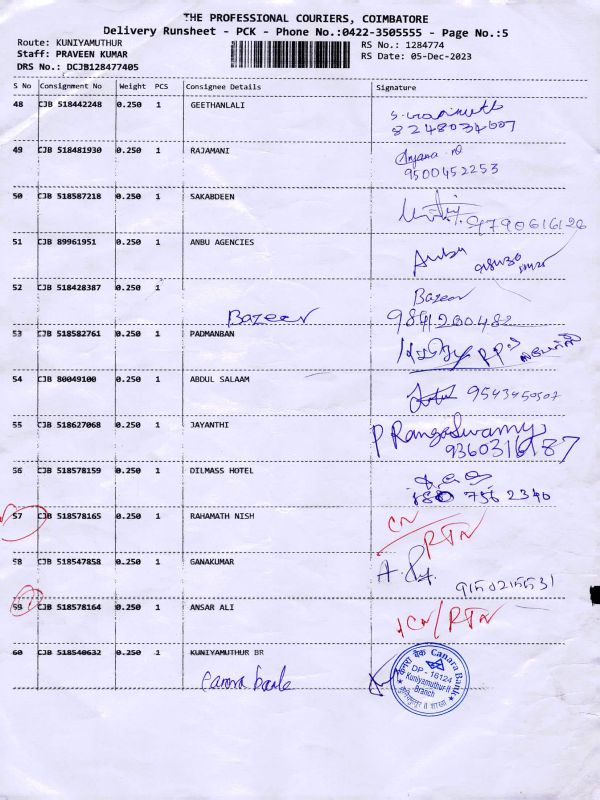 THE PROFESSIONAL COURIERS, COIMBATORE
Delivery Runsheet - PCK - Phone No.:0422-3505555 - Page No.:5
Route: KUNIYAMUTHUR
RS No.: 1284774
Staff: PRAVEEN KUMAR
RS Date: 05-Dec-2023
DRS No.: DCJB128477405
S No Consignment No Weight PCS Consignee Details Signature
48 CJB 518442248 0.250 1 GEETHANLALI
8248034607
49 CJB 518481930 0.250 1 RAJAMANI
9500452253
50 CJB 518587218 0.250 1 SAKABDEEN
9790616126
51 CJB 89961951 0.250 1 ANBU AGENCIES
Anbu
52 CJB 518428387 0.250 1 Bazeer
Bazeer 9841260482
53 CJB 518582761 0.250 1 PADMANBAN
54 CJB 80049100 0.250 1 ABDUL SALAAM
9543450507
55 CJB 518627068 0.250 1 JAYANTHI P RangaSwamy
9360316187
56 CJB 518578159 0.250 1 DILMASS HOTEL
756 2340
57 CJB 518578165 0.250 1 RAHAMATH NISH CN
RTN
58 CJB 518547858 0.250 1 GANAKUMAR
9150215531
59 CJB 518578164 0.250 1 ANSAR ALI CN/RTN
60 CJB 518540632 0.250 1 KUNIYAMUTHUR BR
केनरा बैंक Canara Bank
DP - 16124
Kuniyamuthur-II
Branch